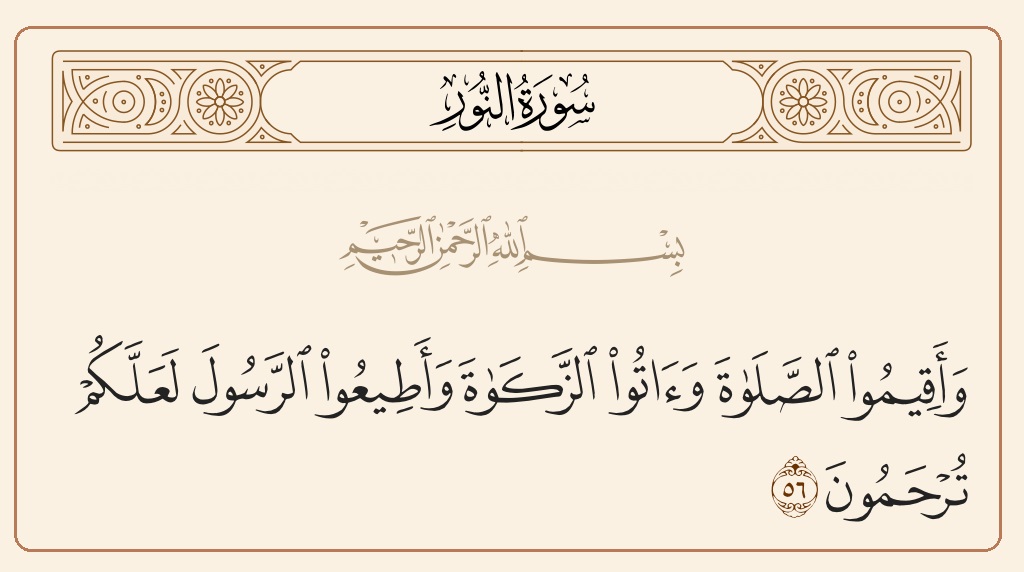 سُورَةُ النُّورِ
بِسْمِ ٱللَّهِ ٱلرَّحْمَٰنِ ٱلرَّحِيمِ
وَأَقِيمُوا۟ ٱلصَّلَوٰةَ وَءَاتُوا۟ ٱلزَّكَوٰةَ وَأَطِيعُوا۟ ٱلرَّسُولَ لَعَلَّكُمْ
تُرْحَمُونَ ٥٦